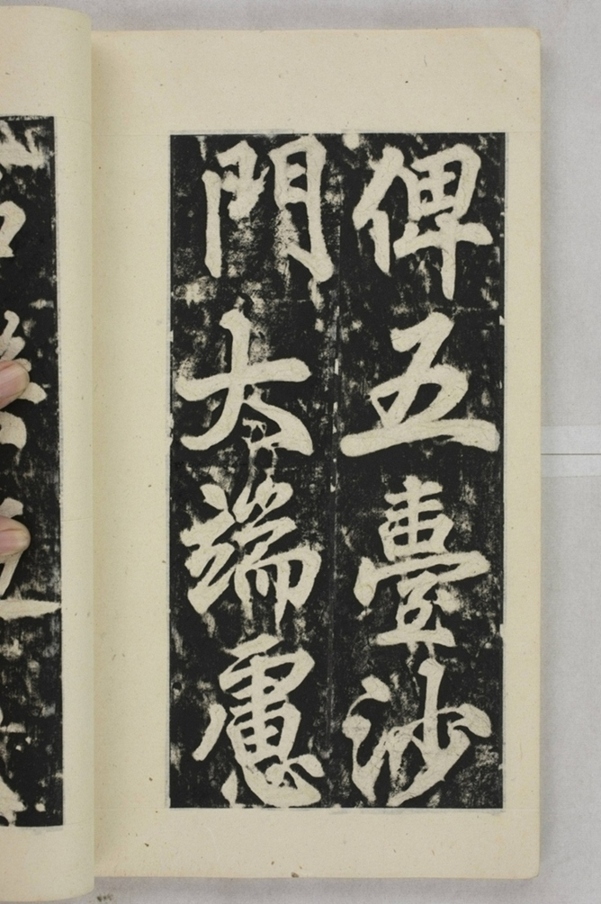 俾五臺沙
門大端慮